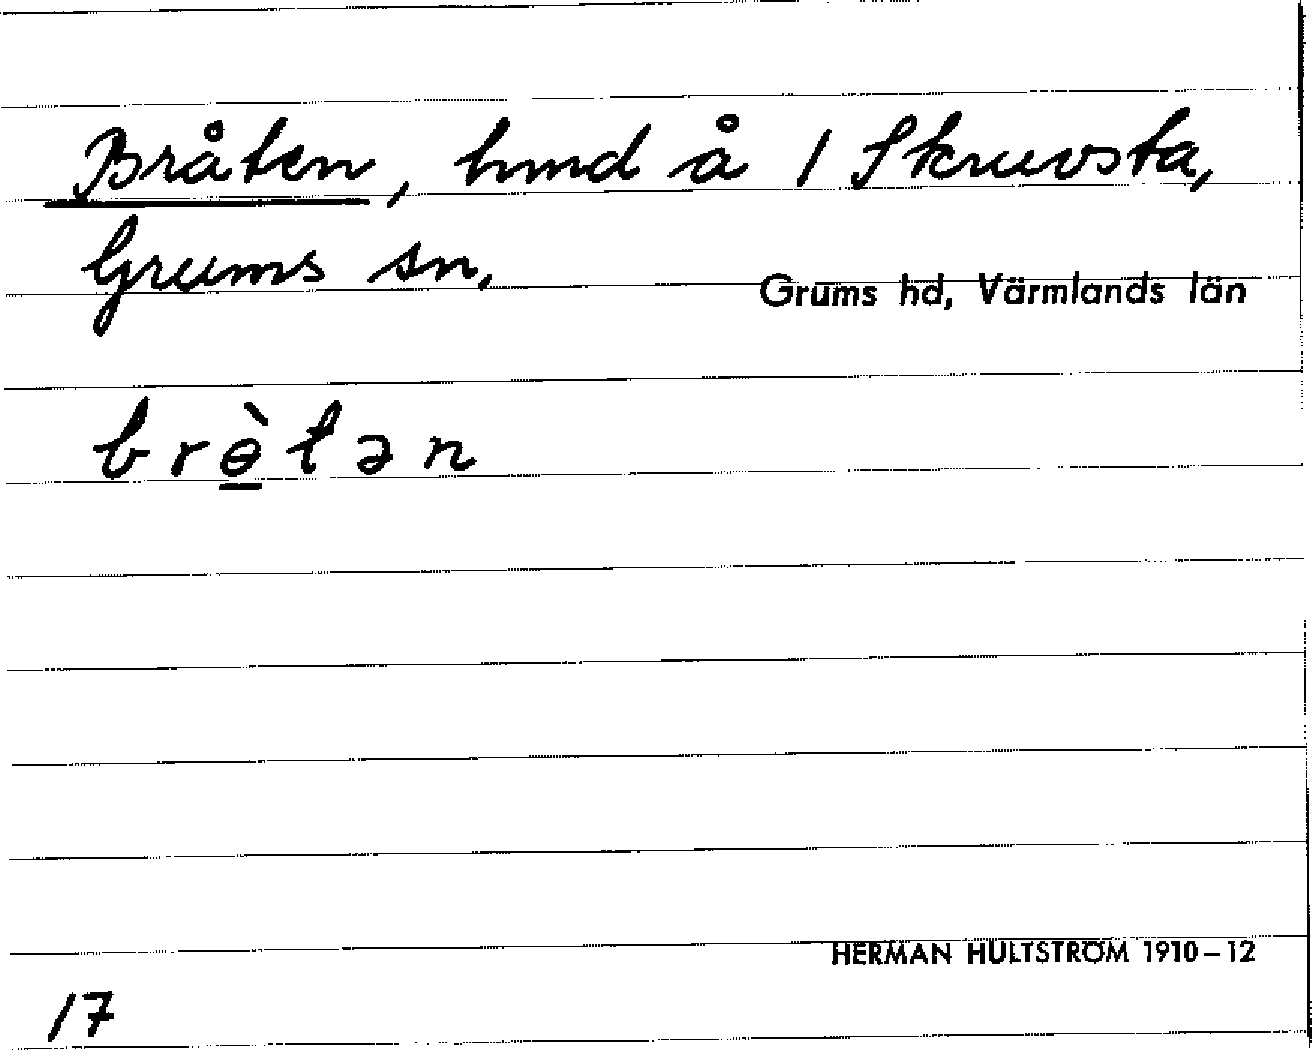 Bråten, hmd å 1 Skruvsta,
Grums sn.
Grums hd, Värmlands län
brɵ̲̀tən
HERMAN HULTSTRÖM 1910–12
17